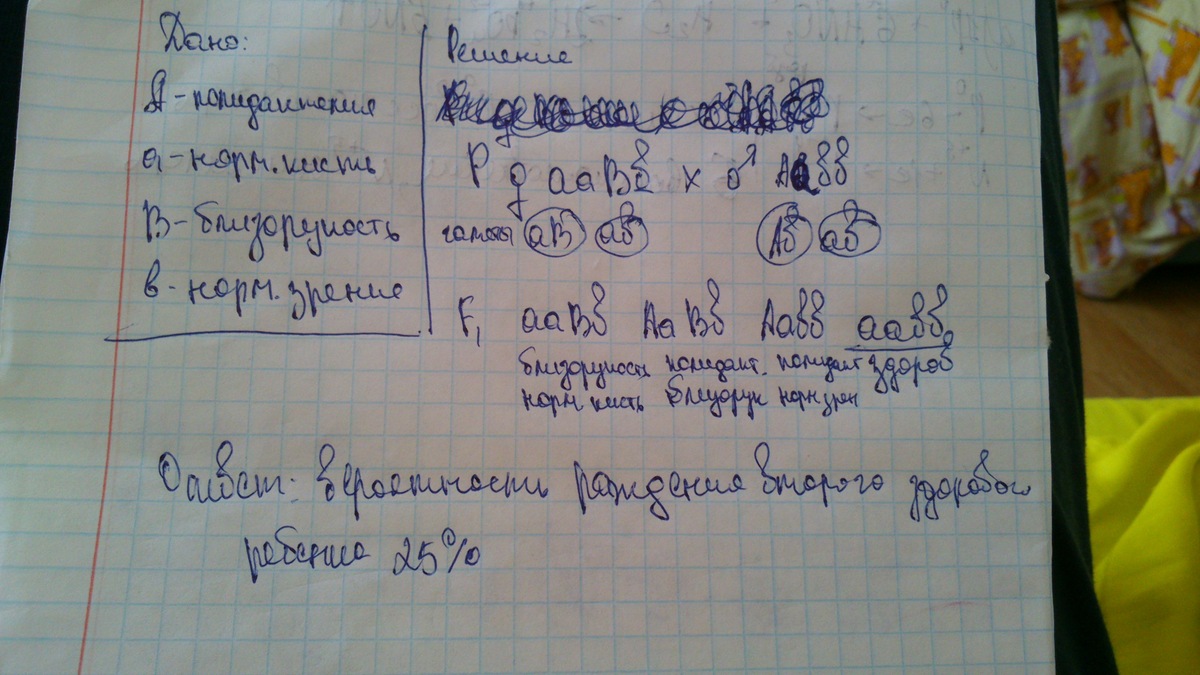 Дано:
А - полидактилия
а - норм. кисть
В - близорукость
в - норм. зрение
Решение
Р ♀ ааВв х ♂ Аавв
гаметы аВ ав Ав ав
F₁ ааВв АаВв Аавв аавв
близорукость полидакт. полидакт здоров
норм кисть близорук норм зрен
Ответ: вероятность раждения второго здорового
ребенка 25%